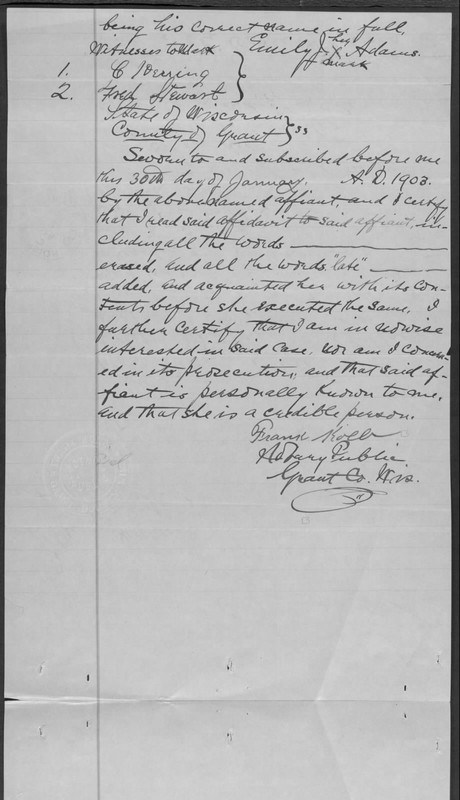 being his correct name in full.
her
Witnesses to Mark Emily X Adams.
mark
1. C Derring
2. Fred Stewart
State of Wisconsin
County of Grant } ss
Sworn to and subscribed before me
this 30th day of January. A. D. 1903.
by the above named affiant, and I certify
that I read said affidavit to said affiant, in-
cluding all the words
erased, and all the words, "late"
added, and acquainted her with its con-
tents before she executed the same. I
further certify that I am in nowise
interested in said case, nor am I concern-
ed in its prosecution, and that said af-
fiant is personally known to me,
and that she is a credible person.
Frank
Notary Public
Grant Co. Wis.